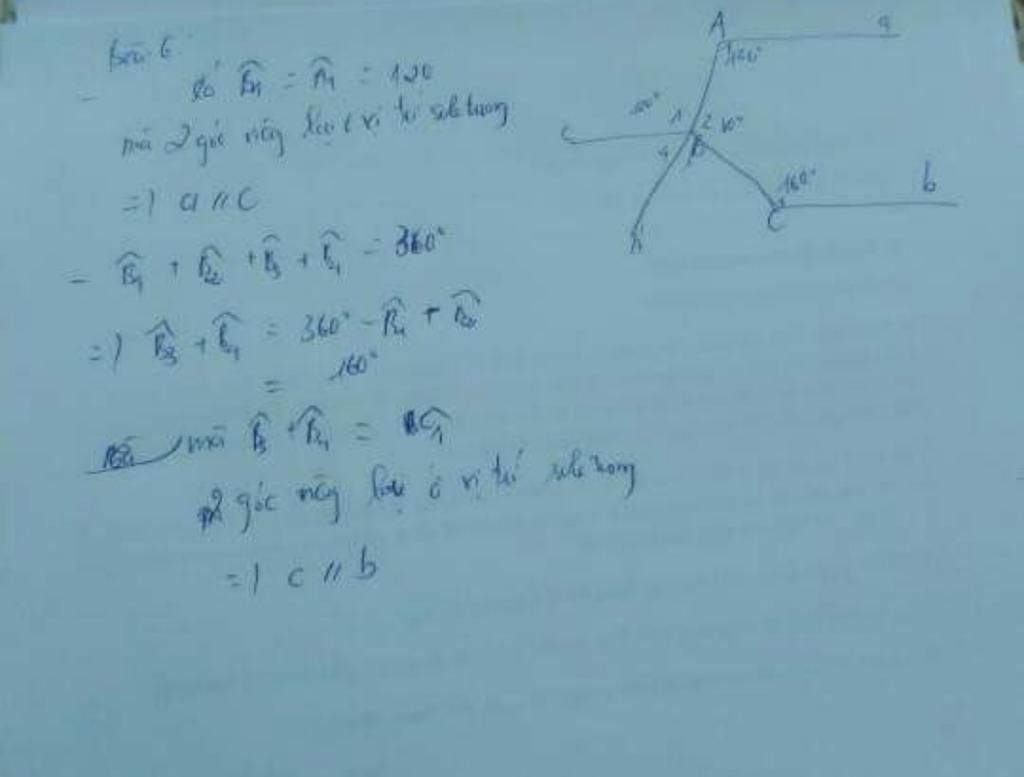 Bài 6
Có B̂1 = Â1 = 120
mà 2 góc này lại ở vị trí sole trong
=) a // c
- B̂1 + B̂2 + B̂3 + B̂4 = 360°
=) B̂3 + B̂4 = 360° - B̂1 + B̂2
= 160°
mà B̂3 + B̂4 = Ĉ1
2 góc này lại ở vị trí sole trong
=) c // b
A a
120°
c 1 2 80°
4 B
160° b
C